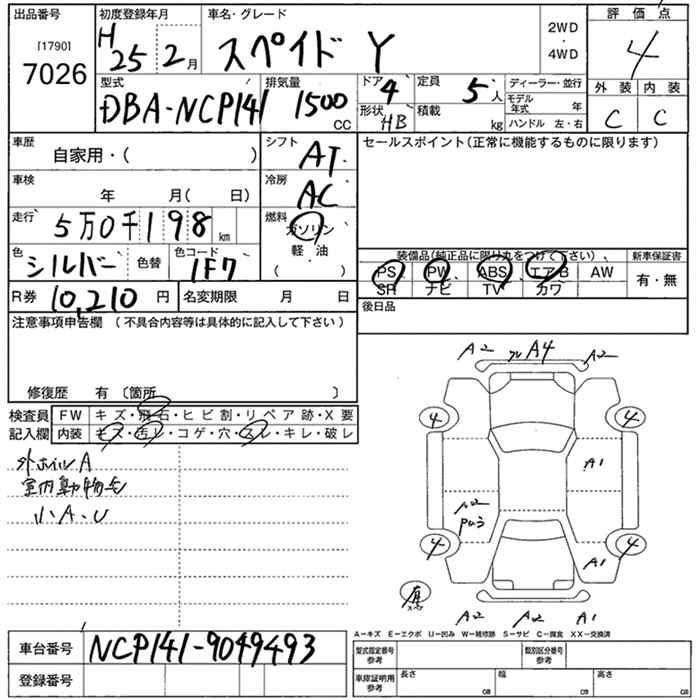 出品番号 初度登録年月 車名・グレード 評価点
[1790]
7026
H25 2月 スペイド Y 2WD・4WD 4
型式 排気量 ドア 4 定員 5人 ディーラー・並行 外装 内装
DBA-NCP141 1500CC 形状 HB 積載 kg モデル年式 年 C C
ハンドル 左・右
車歴 シフト セールスポイント(正常に機能するものに限ります)
自家用・( ) AT
車検 冷房
年 月( 日) AC
走行 燃料
5万0千198km ガソリン
軽・油
( )
色 色コード 装備品(純正品に限り丸をつけて下さい) 新車保証書
シルバー 色替 1F7 PS PW ABS エアB AW 有・無
SR ナビ TV カワ
R券 10,210円 名変期限 月 日 後日品
注意事項申告欄 (不具合内容等は具体的に記入して下さい)
修復歴 有 〔箇所 〕
検査員 FW キズ・飛石・ヒビ割・リペア跡・X要
記入欄 内装 キズ・汚レ・コゲ・穴・スレ・キレ・破レ
外ホイルA
室内動物毛
小A、U
A2 A4 A2
4 4
A1
A2
4 4
A1
A2 A2 A1
A−キズ E−エクボ U−凹み W−補修跡 S−サビ C−腐食 XX−交換済
車台番号 NCP141-9049493
型式指定番号 参考 類別区分番号 参考
登録番号 車庫証明用 参考 長さ cm 幅 cm 高さ cm